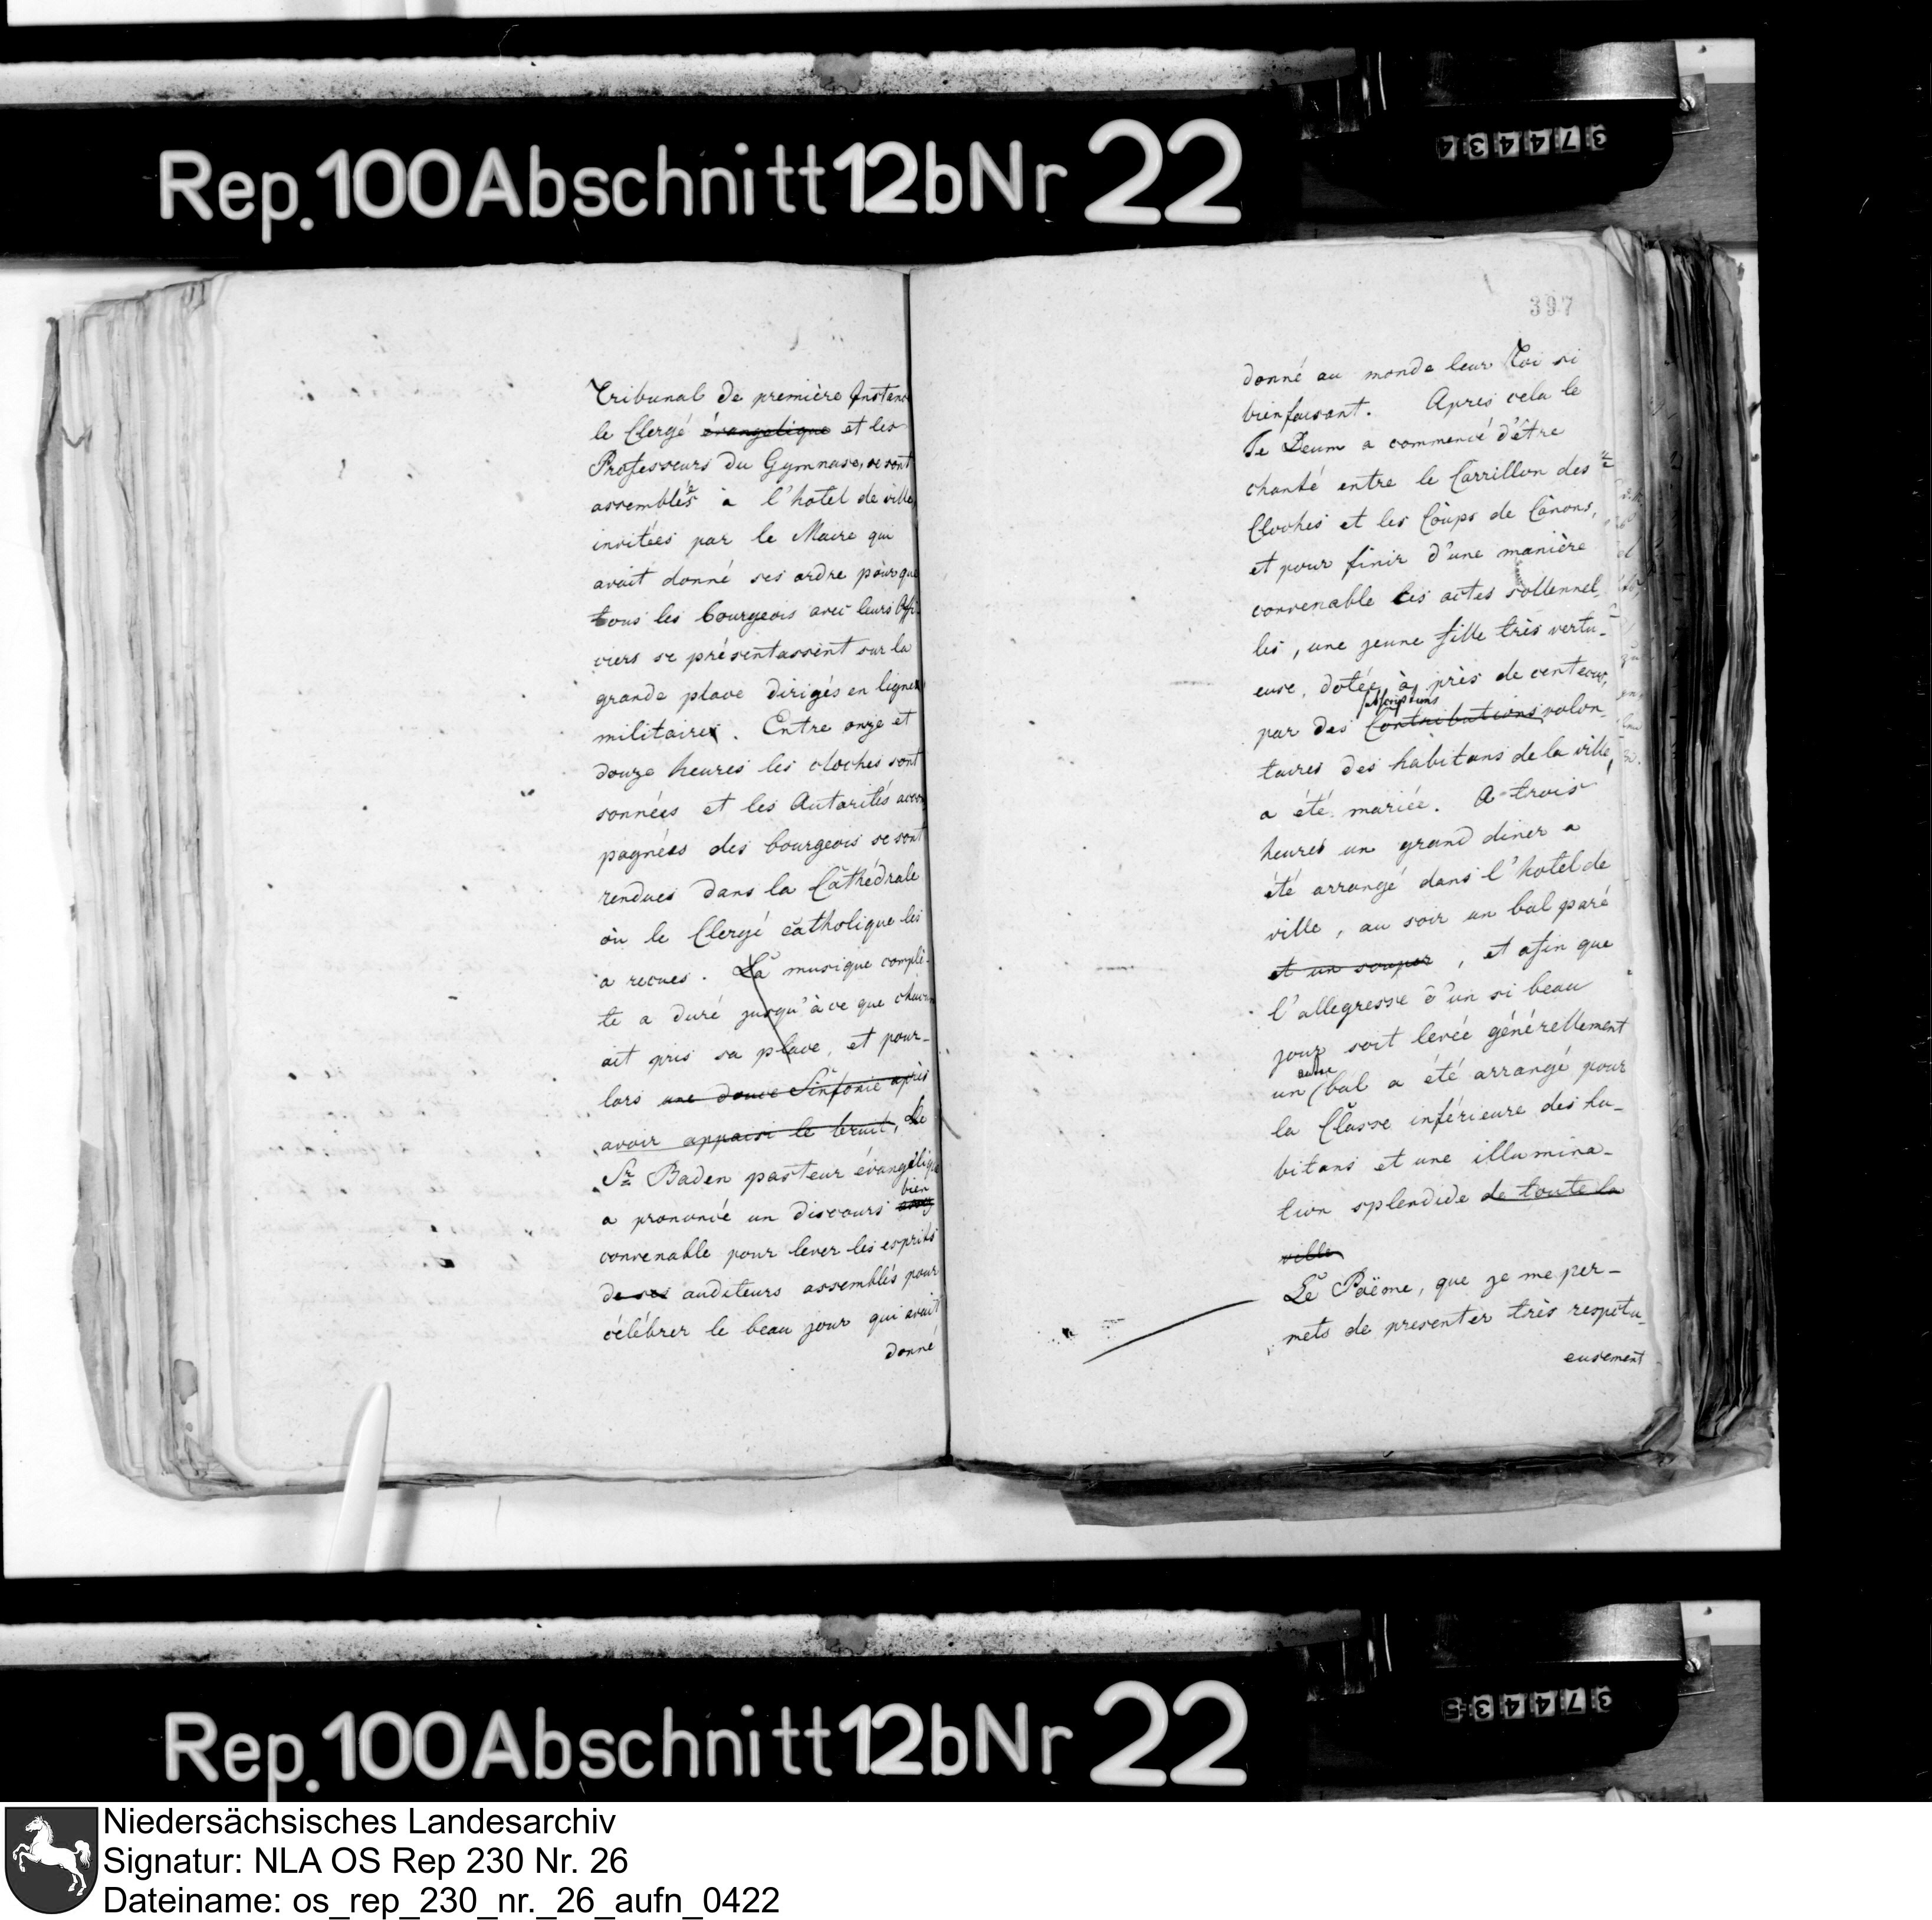 Rep. 100 Abschnitt 12b Nr 22
374434
Tribunal de première Instan
le Clergé évangelique et les
Professeurs du Gymnase, se sont
assemblés à l'hotel de ville,
invitées par le Maire qui
avait donné ses ordre pour que
tous les bourgeois avec leurs Offi
ciers se présentassent sur la
grande place dirigés en ligne
militaire. Entre onze et
douze heures les cloches sont
sonnées et les Autorités acom
pagnées des bourgeois se sont
rendues dans la Cathédrale
où le Clergé catholique les
a recues. La musique complè-
te a duré jusqu'à ce que chacun
ait pris sa place, et pour-
lors une douce Sinfonie après
avoir appaisi le bruit, Le
Sr Baden pasteur évangéliq
bien
a prononcé un discours assez
convenable pour lever les esprits
de ses auditeurs assemblés pour
célébrer le beau jour qui avait
donné
397
donné au monde leur Roi si
bienfaisant. Apres cela le
Te Deum a commencé d'être
chanté entre le Carrillon des
Cloches et les Coups de Canons,
et pour finir d'une manière
convenable les actes sollennel-
les, une jeune fille très vertu-
euse, dotée, à près de cent ecus,
subscriptions
par des Contributions volon-
taires des habitans de la ville,
a été mariée. A trois
heures un grand diner a
été arrangé dans l'hotel de
ville, au soir un bal paré
et un souper, et afin que
l'allegresse d'un si beau
jour soit levée générellement
autre
un bal a été arrangé pour
la Classe inférieure des ha-
bitans et une illumina-
tion splendide de toute la
ville
Le Poëme, que je me per-
mets de presenter très respectu-
eusement
Rep. 100 Abschnitt 12b Nr 22
374435
Niedersächsisches Landesarchiv
Signatur: NLA OS Rep 230 Nr. 26
Dateiname: os_rep_230_nr._26_aufn_0422